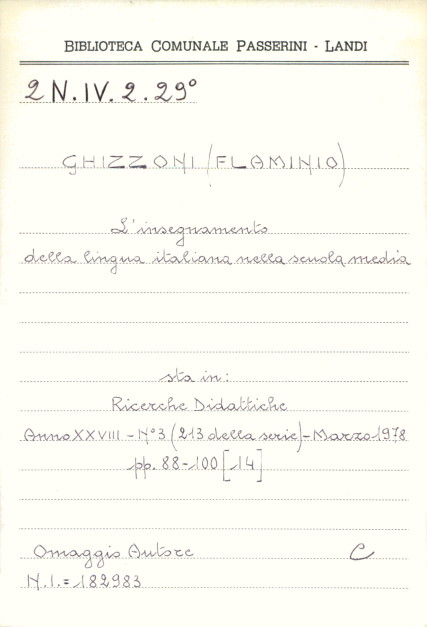 BIBLIOTECA COMUNALE PASSERINI - LANDI
2 N.IV.2.29°
GHIZZONI (FLAMINIO)
L'insegnamento
della lingua italiana nella scuola media
sta in:
Ricerche Didattiche
Anno XXVIII - N°3 (213 della serie) - Marzo 1978
pp. 88-100 [14]
Omaggio Autore C
N.I. = 182983